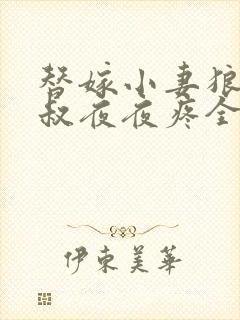 替嫁小妻狼
叔夜夜疼全
伊束美華